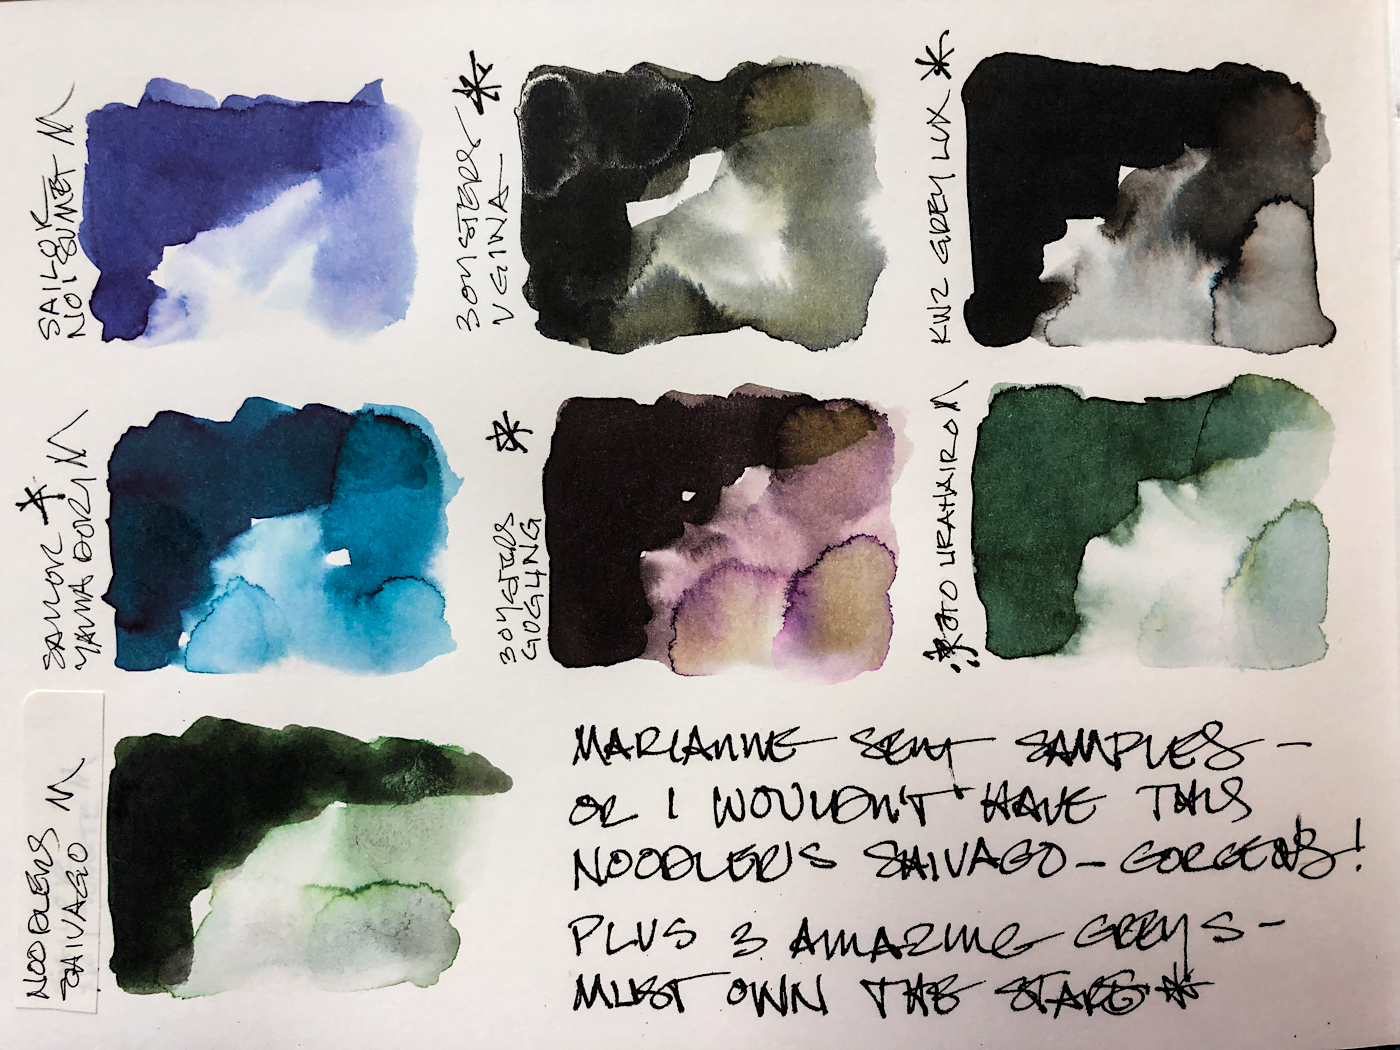 SAILOR
NOI SUMET M
3 OYSTERS *
VGINA
KWZ GREY LUX *
SAILOR *
YAMA DORI M
3 OYSTERS
GUGLING *
* JATO URAHAIRO M
NOODLERS
ZAIVAGO M
MARIANNE SENT SAMPLES -
OR I WOULDN'T HAVE THIS
NOODLER'S SHIVAGO - GORGEOUS!
PLUS 3 AMAZING GREYS -
MUST OWN THE STARS *